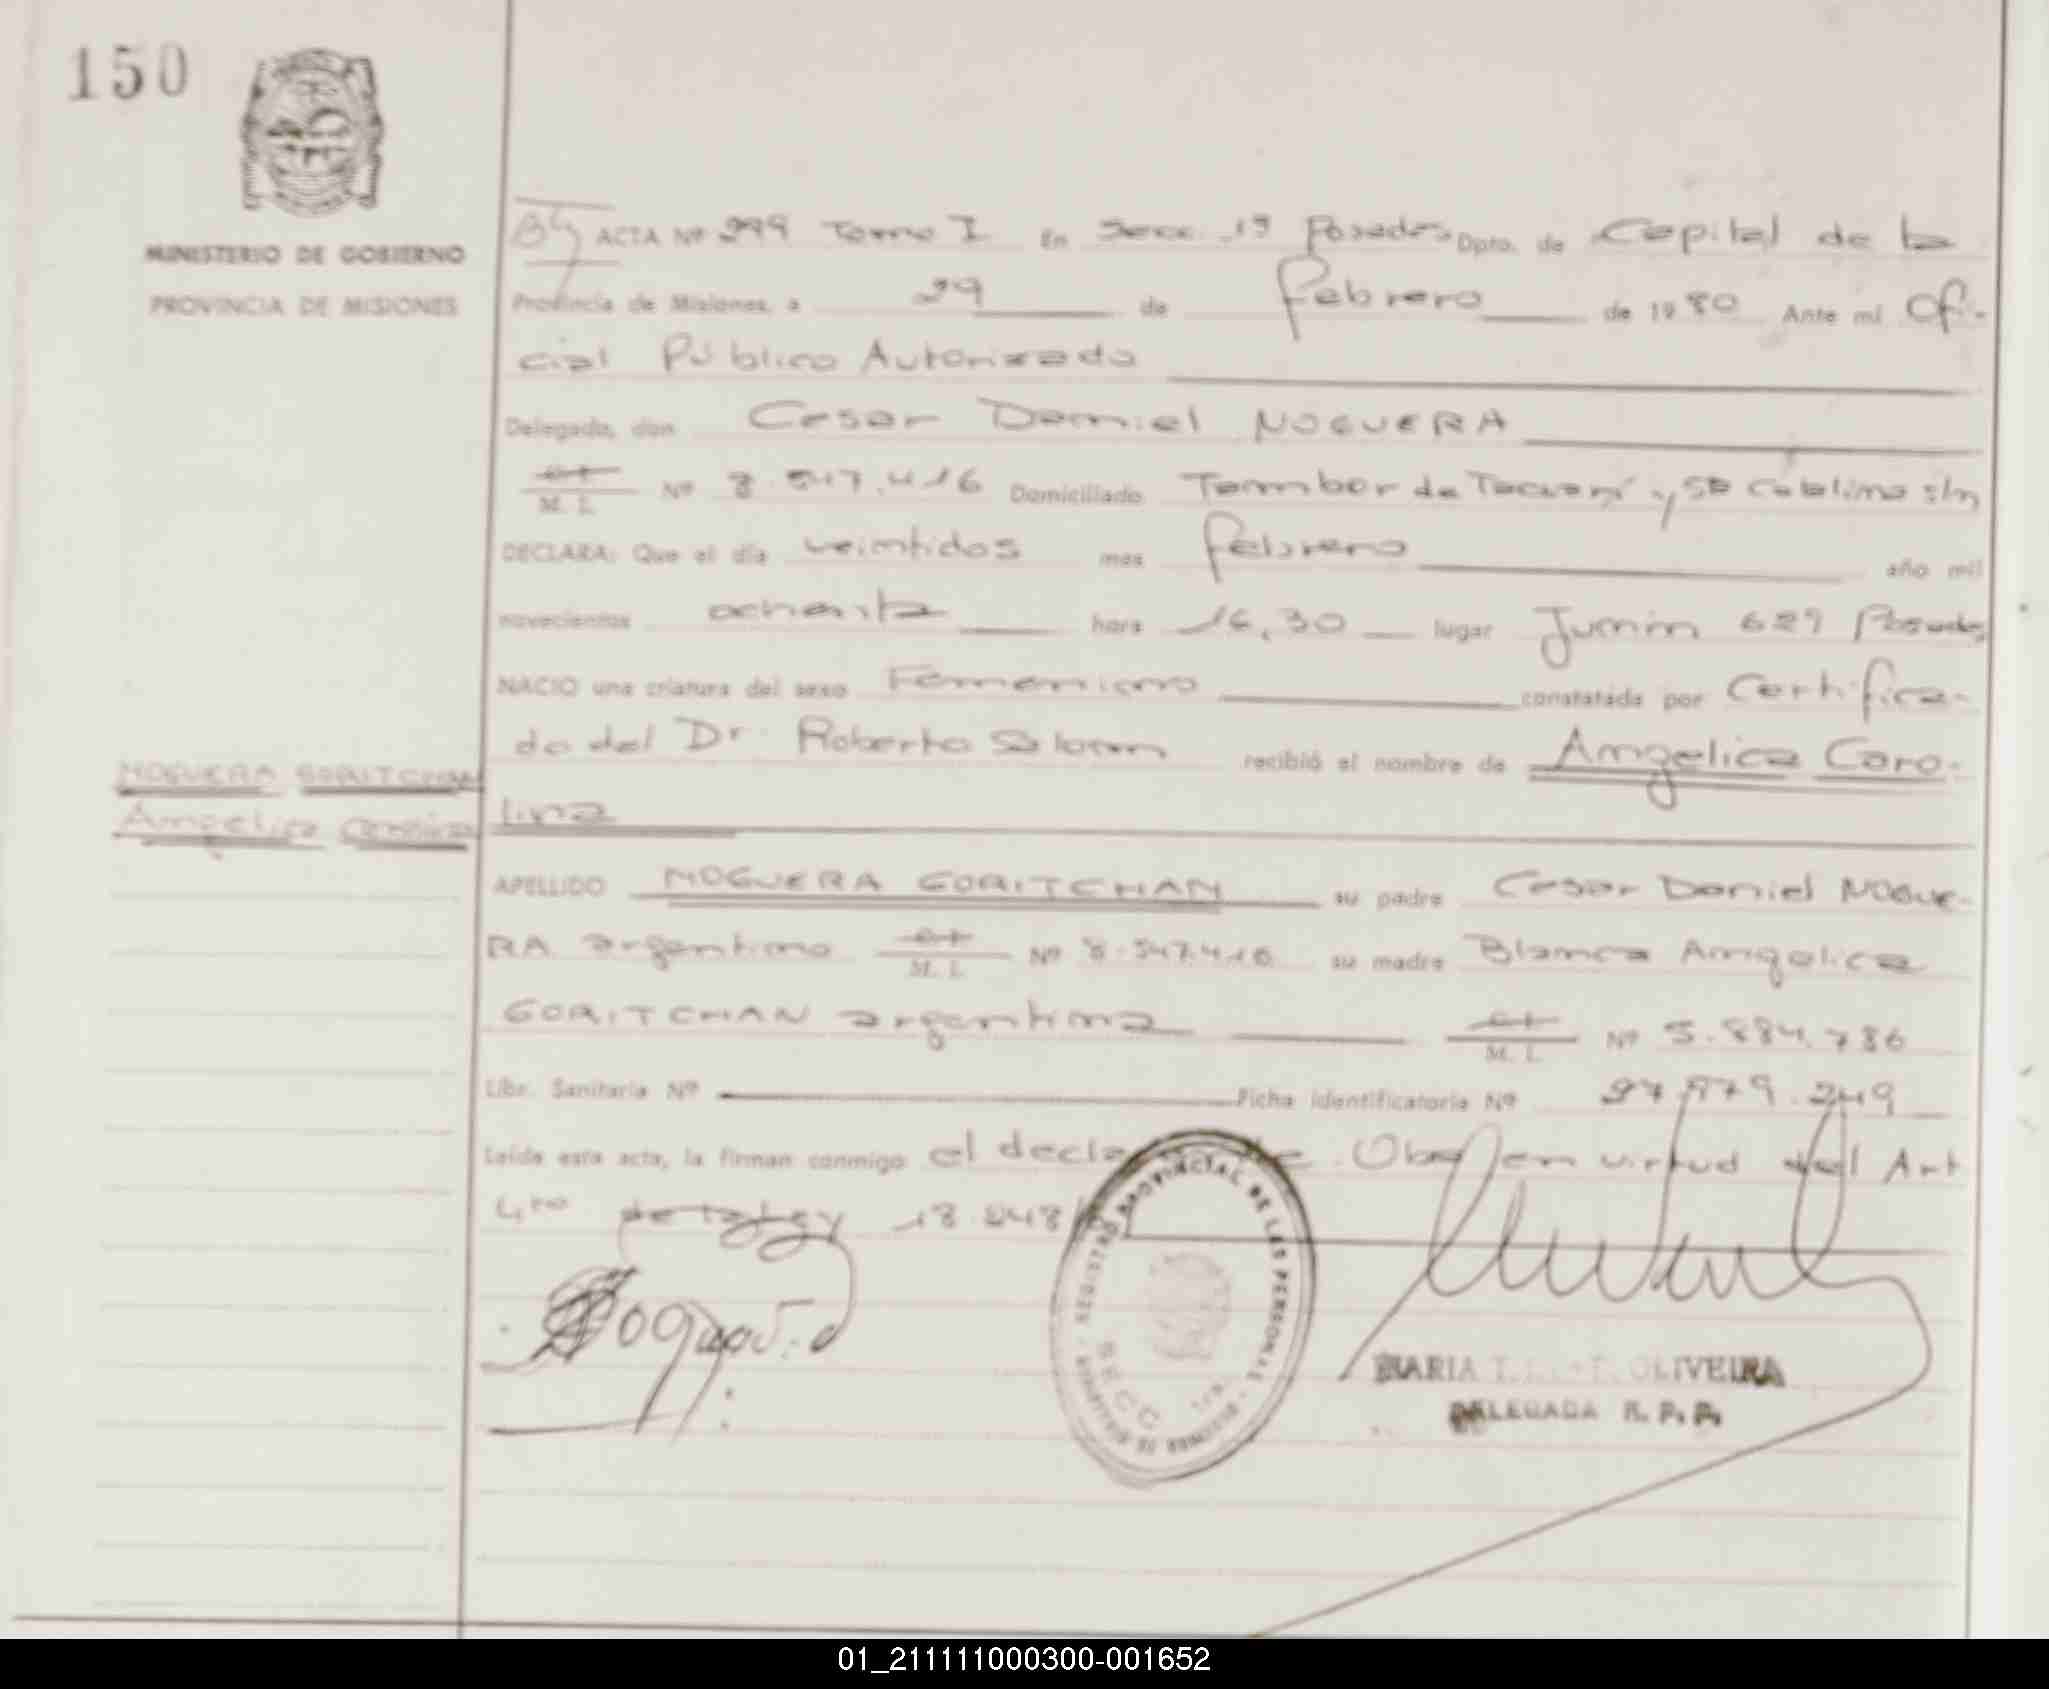 150
MINISTERIO DE GOBIERNO
PROVINCIA DE MISIONES
ACTA Nº 299 Tomo I En Secc. 1ª Posadas Dpto. de Capital de la
Provincia de Misiones, a 29 de febrero de 1980 Ante mi Ofi-
cial Público Autorizado
Delegado, don Cesar Daniel NOGUERA
M. I. Nº 8.547.416 Domiciliado Tambor de Tacuarí y Sta Catalina s/n
DECLARA: Que el día veintidos mes febrero año mil
novecientos ochenta hora 16,30 lugar Junin 629 Posadas
NACIO una criatura del sexo Femenino constatada por Certifica-
do del Dr. Roberto recibió el nombre de Angelica Caro-
lina
NOGUERA GORITCHAN
Angelica Carolina
APELLIDO NOGUERA GORITCHAN su padre Cesar Daniel NOGUE-
RA argentino M. I. Nº 8.547.416 su madre Blanca Angelica
GORITCHAN argentina M. I. Nº 5.884.786
Libr. Sanitaria Nº Ficha identificatoria Nº 27.979.249
Leída esta acta, la firman conmigo el en virtud del Art
4to de la Ley 18.248
REGISTRO PROVINCIAL DE LAS PERSONAS
SECC. 1ra
MARIA OLIVEIRA
DELEGADA R. P. P.
01_211111000300-001652